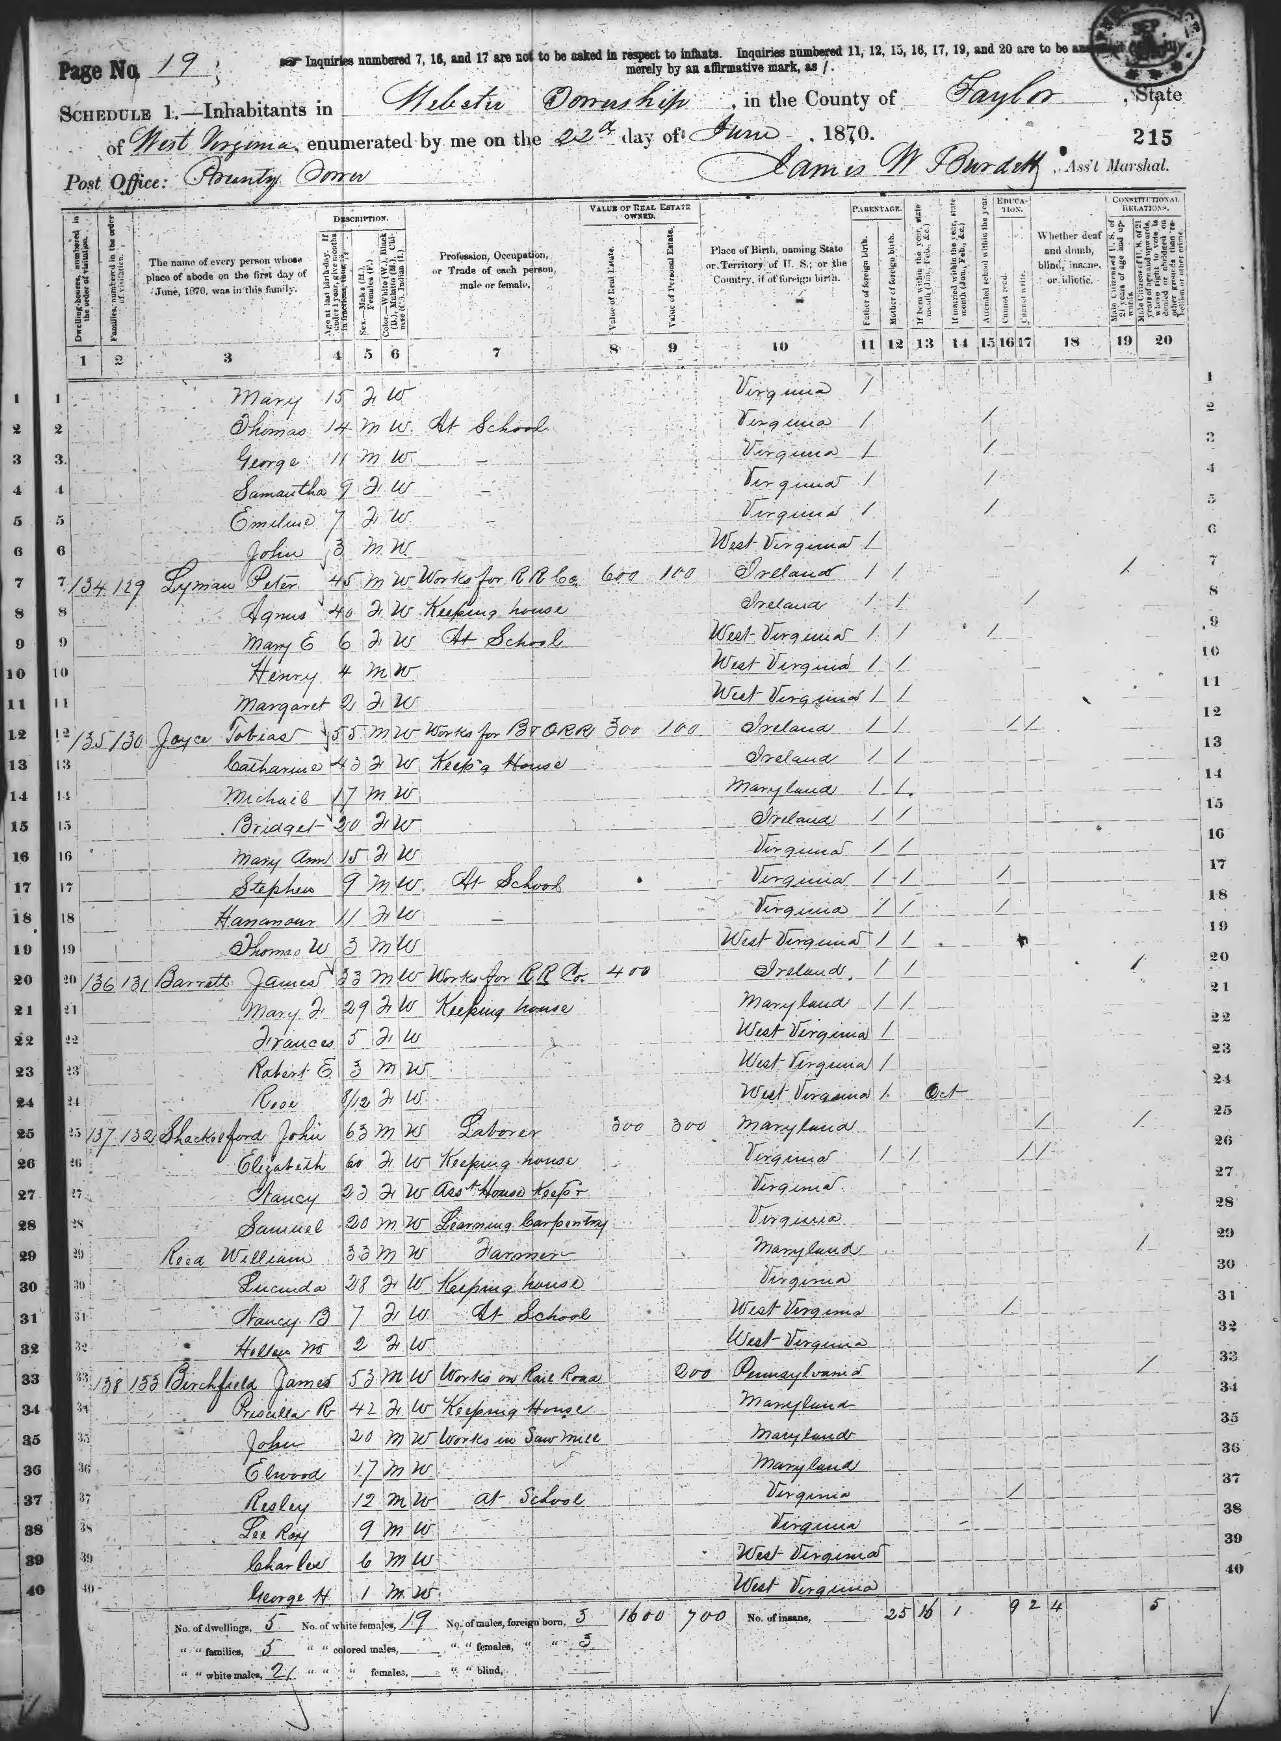 Page No. 19
Inquiries numbered 7, 16, and 17 are not to be asked in respect to infants. Inquiries numbered 11, 12, 15, 16, 17, 19, and 20 are to be
merely by an affirmative mark, as /.
SCHEDULE 1.—Inhabitants in Webster Township, in the County of Taylor, State
of West Virginia, enumerated by me on the 22d day of June, 1870.
215
Post Office: Prunty Town
James W Burdett, Ass't Marshal.
DESCRIPTION. VALUE OF REAL ESTATE OWNED. PARENTAGE. EDUCATION. CONSTITUTIONAL RELATIONS.
Dwelling-houses, numbered in the order of visitation.
Families, numbered in the order of visitation.
The name of every person whose place of abode on the first day of June, 1870, was in this family.
Age at last birth-day. If under 1 year, give months in fractions, thus
Sex.—Males (M.), Females (F.)
Color.—White (W.), Black (B.), Mulatto (M.), Chinese (C.), Indian (I.)
Profession, Occupation, or Trade of each person, male or female.
Value of Real Estate.
Value of Personal Estate.
Place of Birth, naming State or Territory of U. S.; or the Country, if of foreign birth.
Father of foreign birth.
Mother of foreign birth.
If born within the year, state month (Jan., Feb., &c.)
If married within the year, state month (Jan., Feb., &c.)
Attended school within the year.
Cannot read.
Cannot write.
Whether deaf and dumb, blind, insane, or idiotic.
Male Citizens of U. S. of 21 years of age and upwards.
Male Citizens of U. S. of 21 years of age and upwards, whose right to vote is denied or abridged on other grounds than rebellion or other crime.
1 2 3 4 5 6 7 8 9 10 11 12 13 14 15 16 17 18 19 20
1 1 Mary 15 F W Virginia / 1
2 2 Thomas 14 M W At School Virginia / / 2
3 3 George 11 M W - Virginia / / 3
4 4 Samantha 9 F W - Virginia / / 4
5 5 Emiline 7 F W - Virginia / / 5
6 6 John 3 M W West Virginia / 6
7 7 134 129 Lyman Peter 45 M W Works for R R Co 600 100 Ireland / / / 7
8 8 Agnus 40 F W Keeping house Ireland / / / 8
9 9 Mary E 6 F W At School West Virginia / / / 9
10 10 Henry 4 M W West Virginia / / 10
11 11 Margaret 2 F W West Virginia / / 11
12 12 135 130 Joyce Tobias 55 M W Works for B & O R R 300 100 Ireland / / / / 12
13 13 Catharine 43 F W Keep'g House Ireland / / 13
14 14 Michail 17 M W Maryland / / 14
15 15 Bridget 20 F W Ireland / / 15
16 16 Mary Ann 15 F W Virginia / / 16
17 17 Stephen 9 M W At School Virginia / / / 17
18 18 Hananour 11 F W - Virginia / / / 18
19 19 Thomas W 3 M W West Virginia / / 19
20 20 136 131 Barrett James 33 M W Works for R R Co. 400 Ireland / / / 20
21 21 Mary F 29 F W Keeping house Maryland / / 21
22 22 Frances 5 F W West Virginia / 22
23 23 Robert E 3 M W West Virginia / 23
24 24 Rose 8/12 F W West Virginia / Oct 24
25 25 137 132 Shackelford John 63 M W Laborer 300 300 Maryland / / 25
26 26 Elizabeth 60 F W Keeping house Virginia / / / / 26
27 27 Nancy 23 F W Ass't House Keep'r Virginia 27
28 28 Samuel 20 M W Learning Carpentry Virginia 28
29 29 Reed William 33 M W Farmer Maryland / 29
30 30 Lucinda 28 F W Keeping house Virginia 30
31 31 Nancy B 7 F W At School West Virginia / 31
32 32 Hellen M 2 F W West Virginia 32
33 33 138 133 Birchfield James 53 M W Works on Rail Road 200 Pennsylvania / 33
34 34 Priscilla R 42 F W Keeping House Maryland 34
35 35 John 20 M W Works in Saw Mill Maryland 35
36 36 Elwood 17 M W Maryland 36
37 37 Resley 12 M W At School Virginia / 37
38 38 Lee Roy 9 M W Virginia 38
39 39 Charles 6 M W West Virginia 39
40 40 George H 1 M W West Virginia 40
No. of dwellings, 5 No. of white females, 19 No. of males, foreign born, 3 1600 700 No. of insane, 25 16 1 9 2 4 5
" " families, 5 " " colored males, " " females, " " 3
" " white males, 21 " " " females, " " blind,